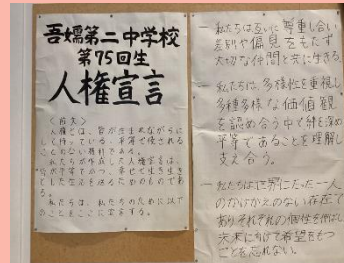 吾嬬第二中学校
第75回生
人権宣言
〈前文〉
人権とは、皆が生まれながらに
して持っている、平等で侵される
ことのない権利である。
私たちが作成した人権宣言は、
皆が平等でかつ、幸せで生き生き
とした生活を送るためのものであ
る。
私たちは、私たちのために以下
のことをここに宣言する。
一 私たちは互いに尊重し合い
差別や偏見をもたず
大切な仲間と共に生きる。
一 私たちは、多様性を重視し
多種多様な価値観
を認め合う中で絆を深め
平等であることを理解し
支え合う。
一 私たちは世界にたった一人
のかけがえのない存在で
ありそれぞれの個性を伸ばし
未来に向けて希望をもつ
ことを忘れない。